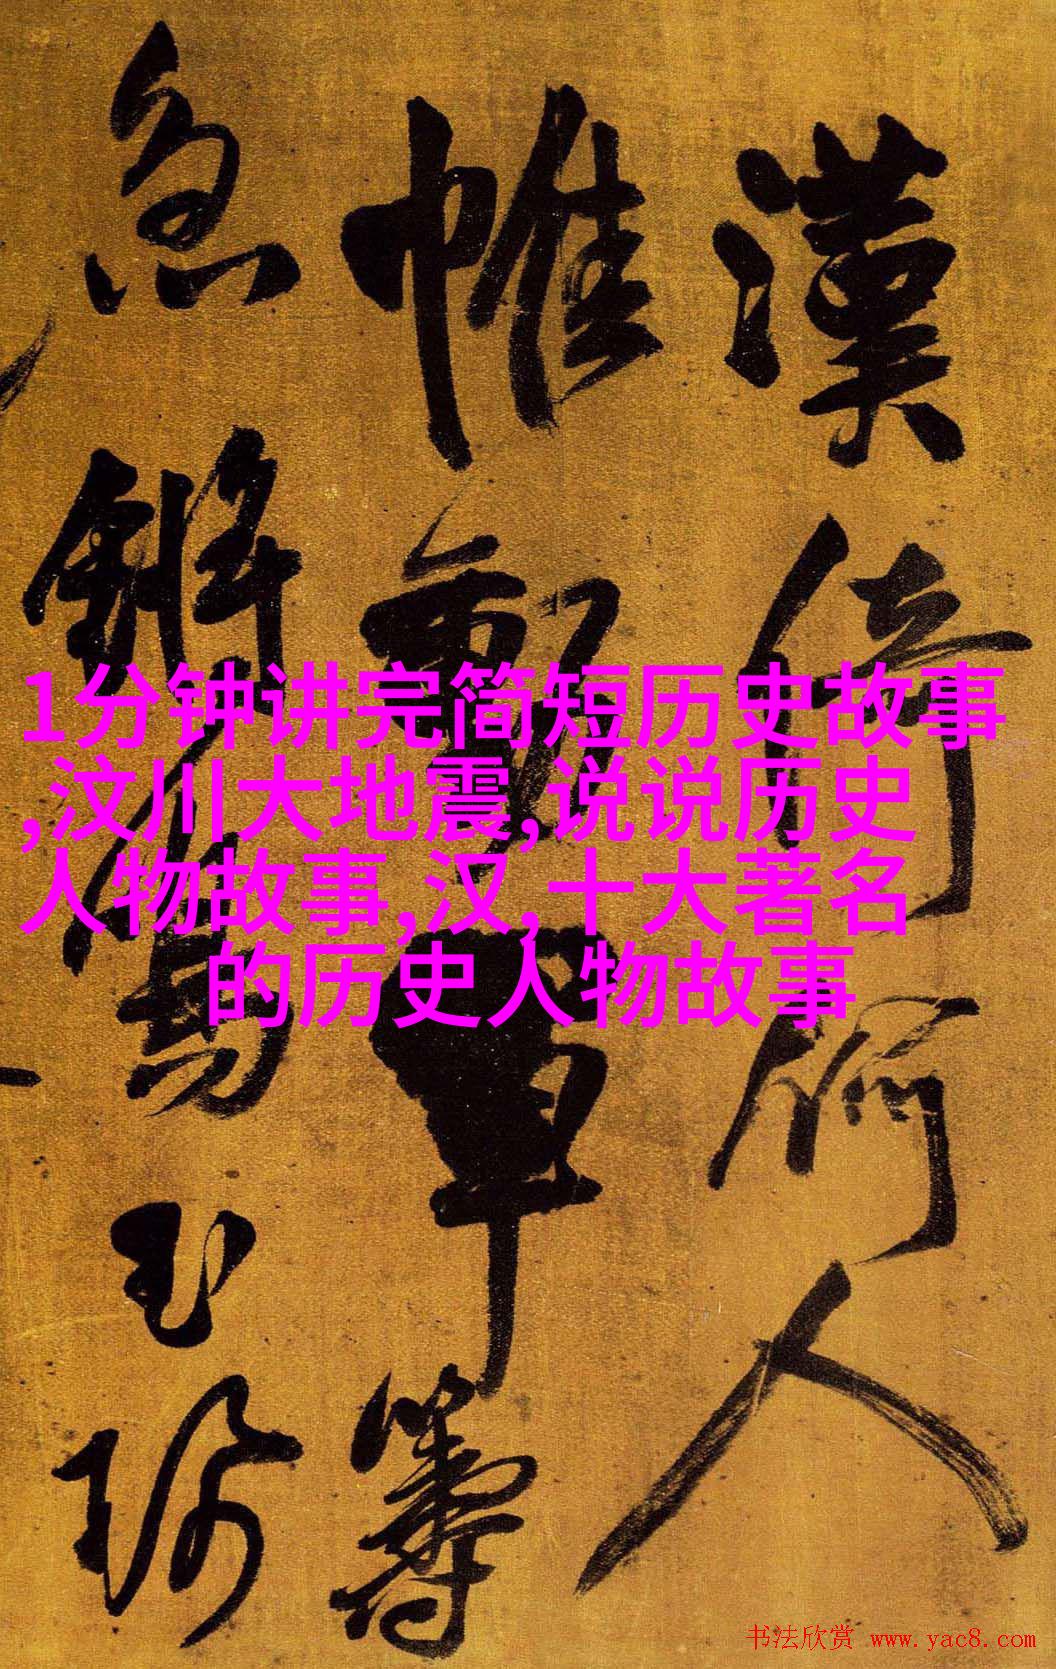 漢倚何人
帷
軍籌
急
1分钟讲完简短历史故事
,汶川大地震,说说历史
人物故事,汉,十大著名
的历史人物故事
书法欣赏 www.yac8.com